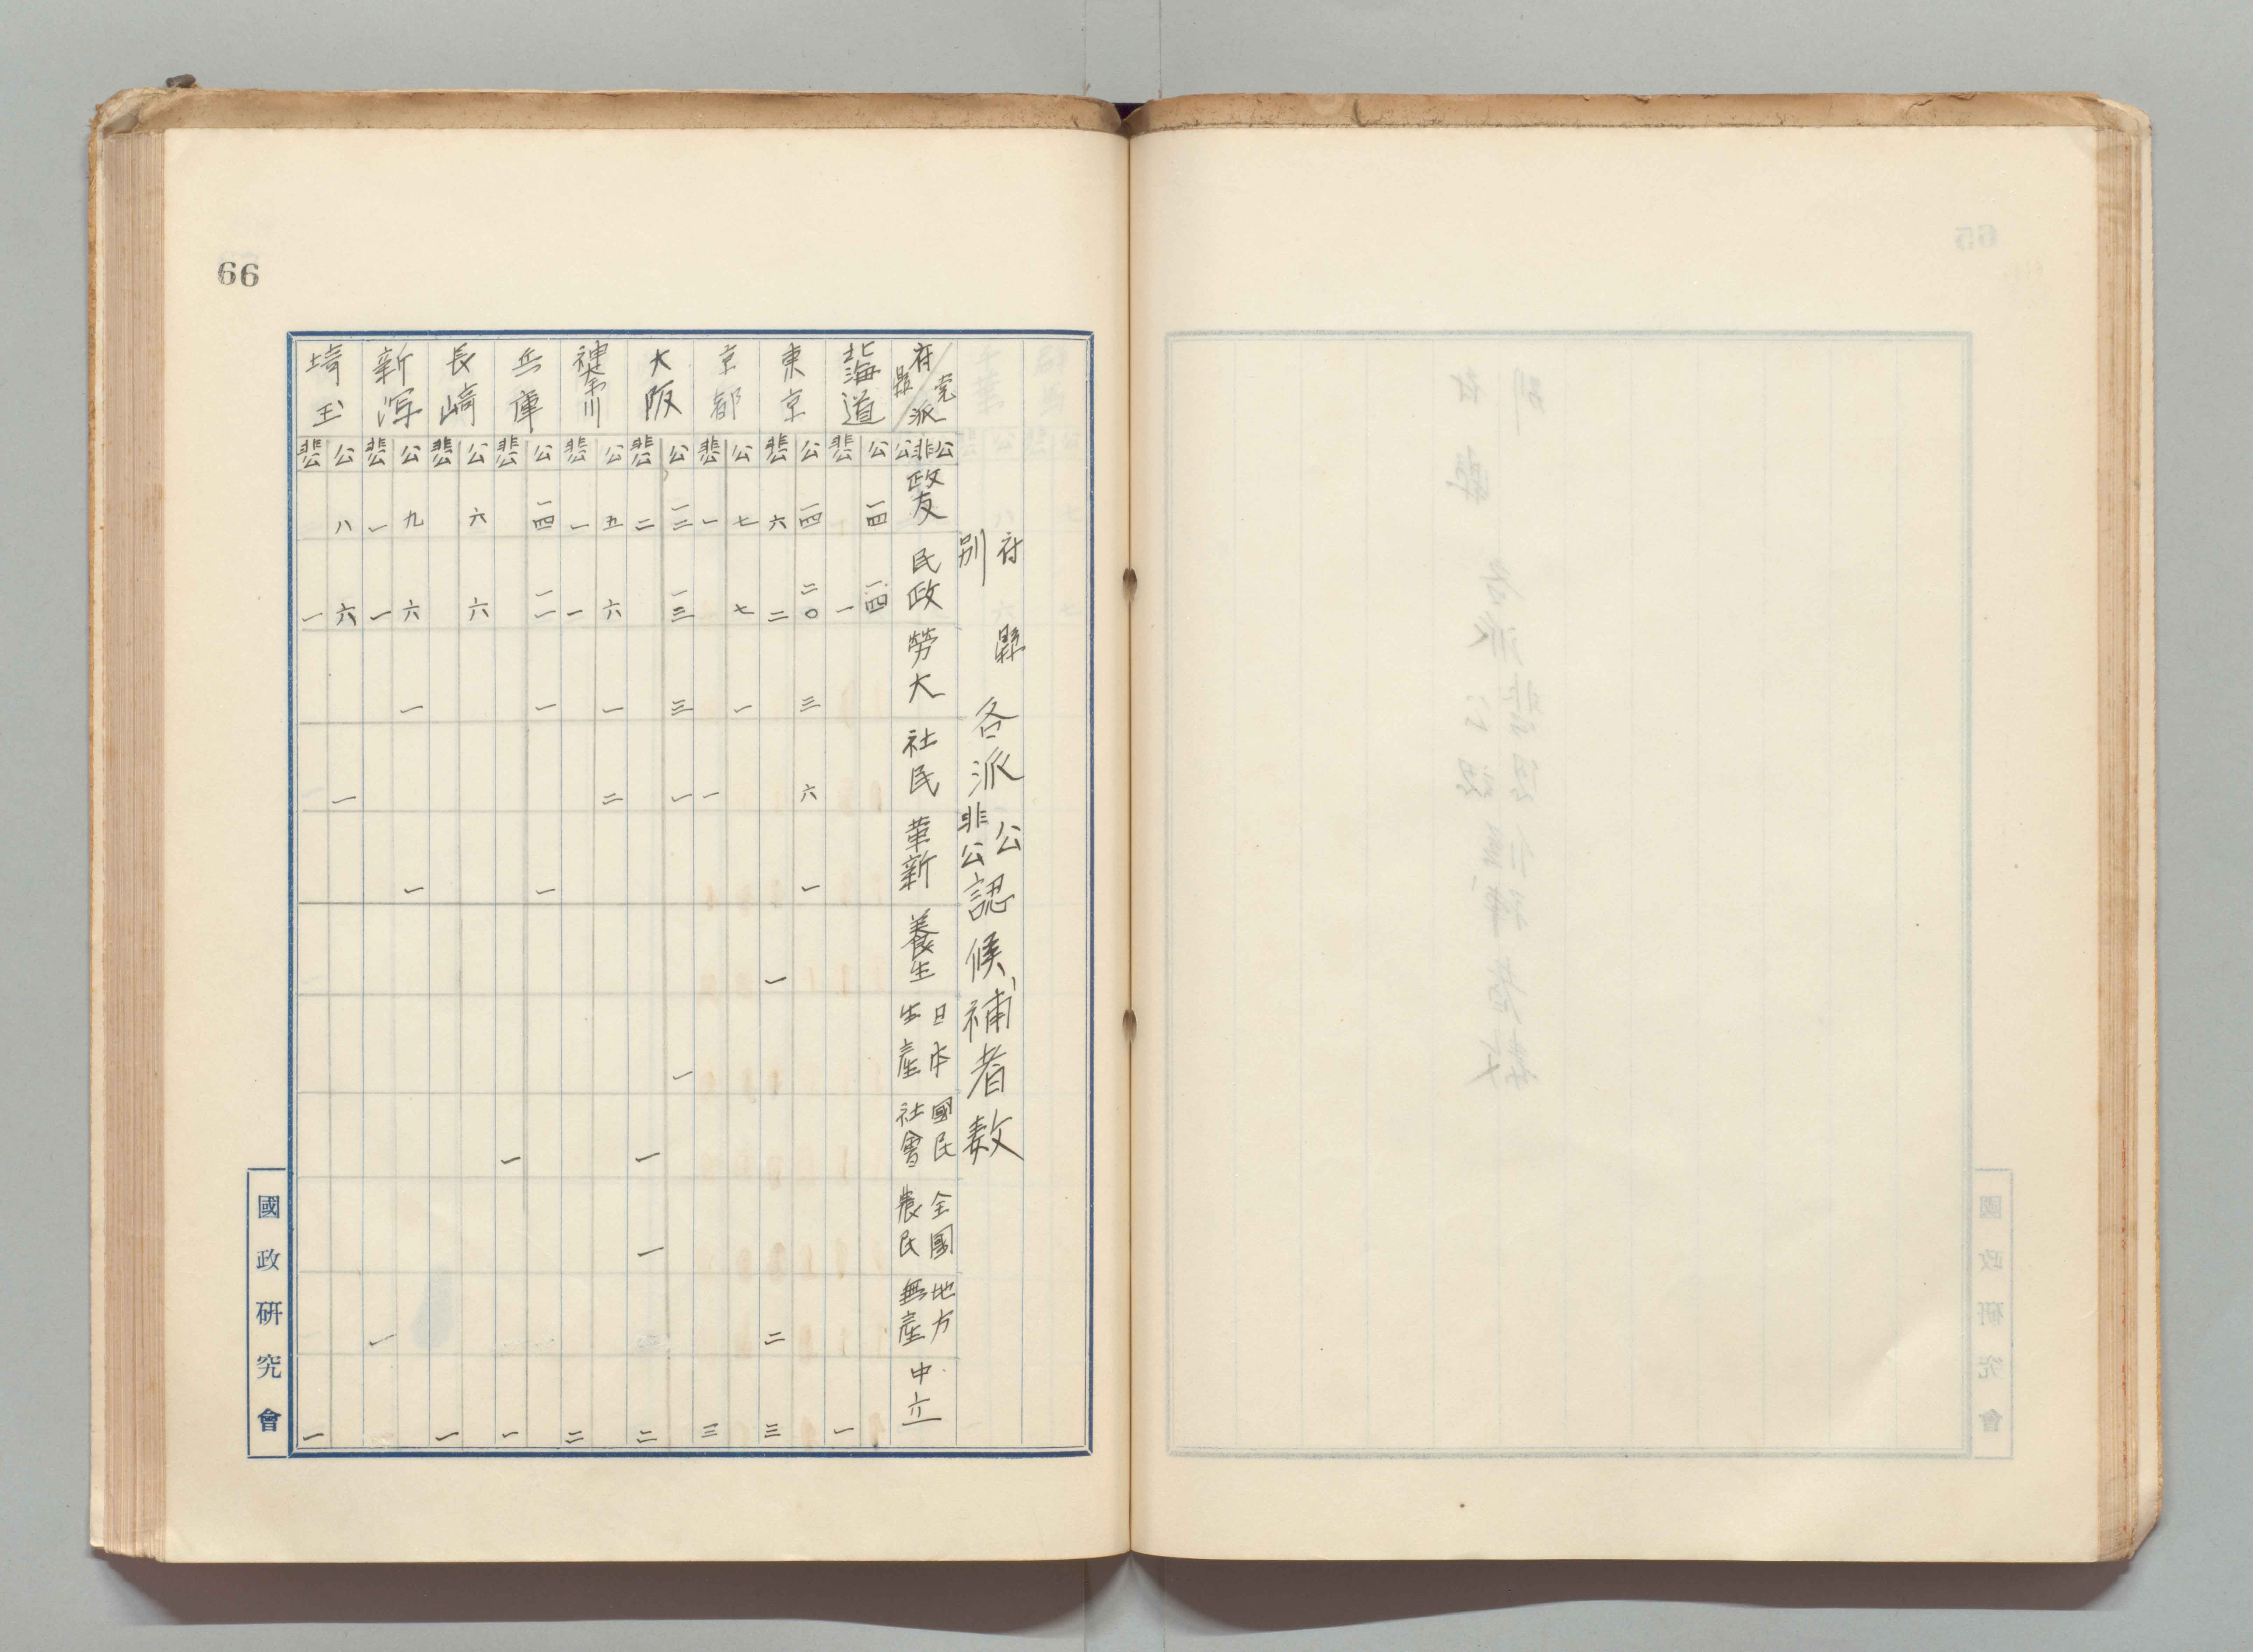 66
府縣別各派公非公認候補者数
府縣 党派 公 非公 政友 民政 勞大 社民 革新 養生 日本生産 國民社會 全國農民 地方無産 中立
北海道 公 一四 一四
非公 一 一
東京 公 一四 二〇 三 六 一
非公 六 二 一 二 三
京都 公 七 七 一
非公 一 一 三
大阪 公 一二 一三 三 一 一
非公 二 一 一 二
神奈川 公 五 六 一 二
非公 一 一 二
兵庫 公 一四 一一 一 一
非公 一 一
長崎 公 六 六
非公 一
新潟 公 九 六 一 一
非公 一 一 一
埼玉 公 八 六 一
非公 一 一
國政研究會